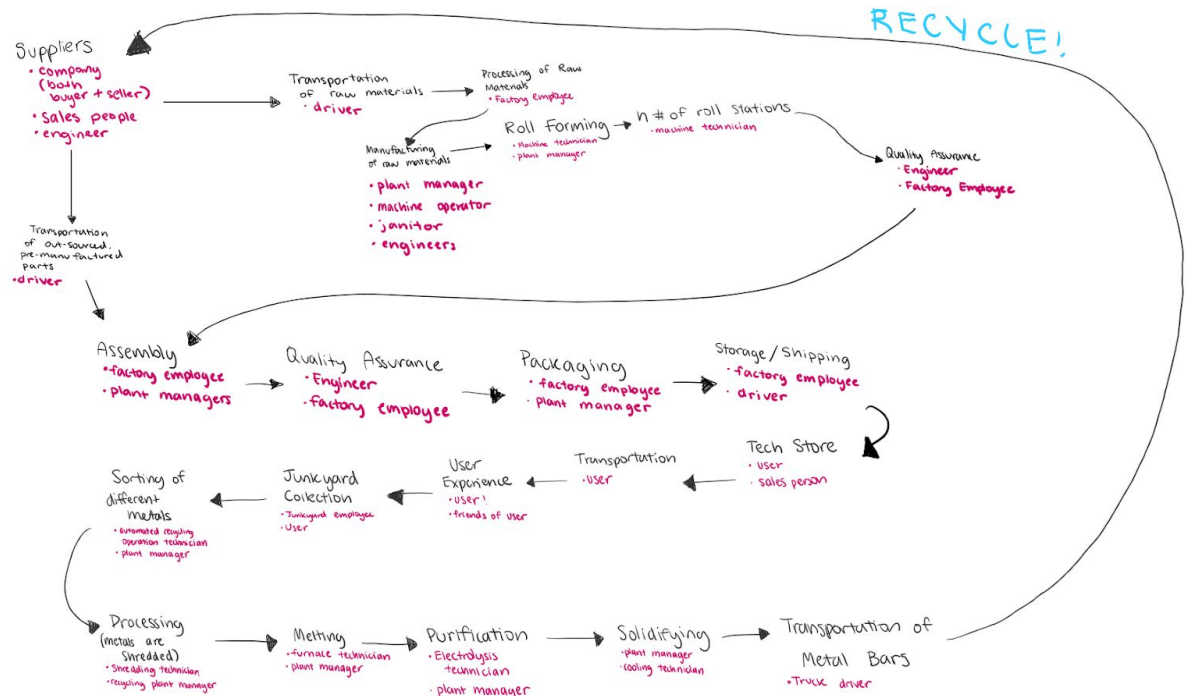 RECYCLE!
Suppliers
• company
(both
buyer + seller)
• Sales people
• engineer
Transportation
of raw materials
• driver
Processing of Raw
Materials
• Factory employee
Manufacturing
of raw materials
• plant manager
• machine operator
• janitor
• engineers
Roll Forming
• Machine technician
• plant manager
n # of roll stations
• machine technician
Quality Assurance
• Engineer
• Factory Employee
Transportation
of out-sourced,
pre-manufactured
parts
• driver
Assembly
• factory employee
• plant managers
Quality Assurance
• Engineer
• factory employee
Packaging
• factory employee
• plant manager
Storage/Shipping
• factory employee
• driver
Tech Store
• user
• sales person
Transportation
• user
User
Experience
• user!
• friends of user
Junkyard
Collection
• Junkyard employee
• User
Sorting of
different
metals
• automated recycling
operation technician
• plant manager
Processing
(metals are
shredded)
• Shredding technician
• recycling plant manager
Melting
• furnace technician
• plant manager
Purification
• Electrolysis
technician
• plant manager
Solidifying
• plant manager
• cooling technician
Transportation of
Metal Bars
• Truck driver